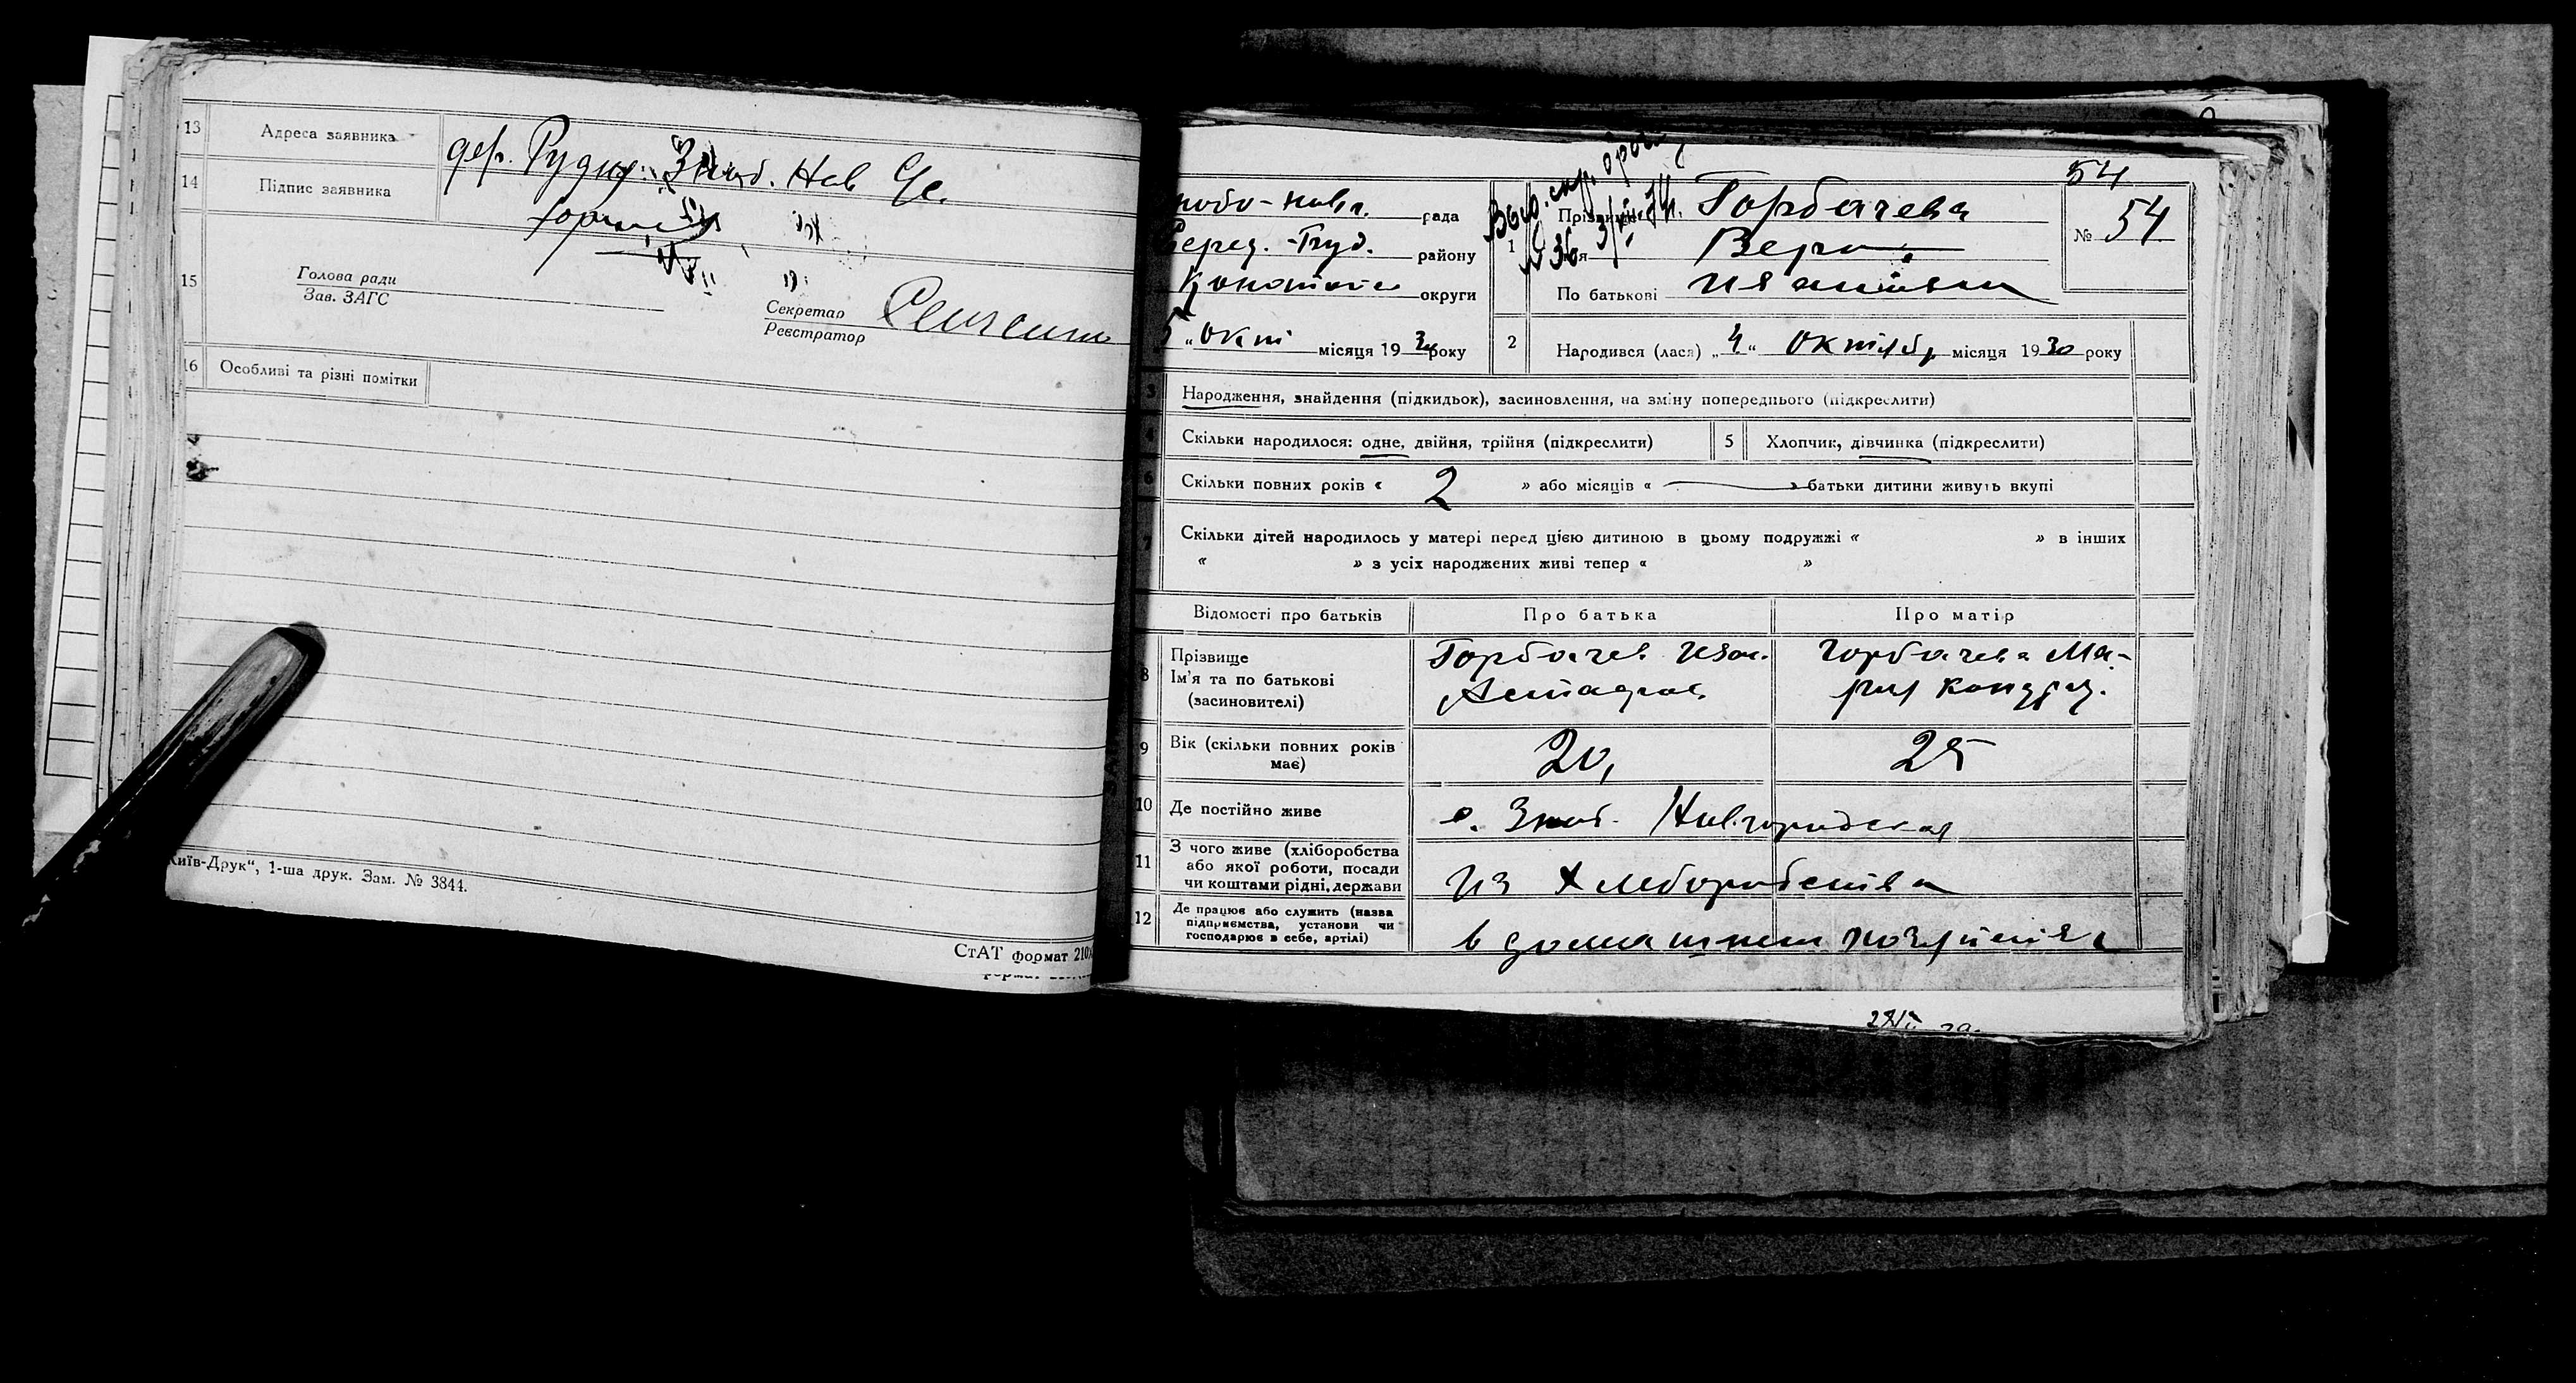 13 Адреса заявника дер. Рудня. Зноб. Нов
14 Підпис заявника
15 Голова ради
Зав. ЗАГС
Секретар
Реєстратор
16 Особливі та різні помітки
Київ-Друк“, 1-ша друк. Зам. № 3844.
СтАТ формат 210
54
нобо-новг. рада
Серед.-Буд. району
Конотопс округи
5 „ окт місяця 1930 року
1 Прізвище Горбачева
Вера
По батькові Ивановна
№ 54
2 Народився (лася) „ 4 “ Октябр місяця 1930 року
3 Народження, знайдення (підкидьок), засиновлення, на зміну попереднього (підкреслити)
4 Скільки народилося: одне, двійня, трійня (підкреслити) 5 Хлопчик, дівчинка (підкреслити)
6 Скільки повних років « 2 » або місяців « — » батьки дитини живуть вкупі
7 Скільки дітей народилось у матері перед цією дитиною в цьому подружжі « » в інших
« » з усіх народжених живі тепер « »
Відомості про батьків Про батька Про матір
8 Прізвище
Ім’я та по батькові
(засиновителі)
Горбачев Иван
Горбачева Ма-
рия Кондрат.
9 Вік (скільки повних років
має)
20, 25
10 Де постійно живе с. Зноб- Новгородская
11 З чого живе (хліборобства
або якої роботи, посади
чи коштами рідні, держави
из Хлеборобства
12 Де працює або служить (назва
підприємства, установи чи
господарює в себе, артілі)
в домашнем хозяйстве